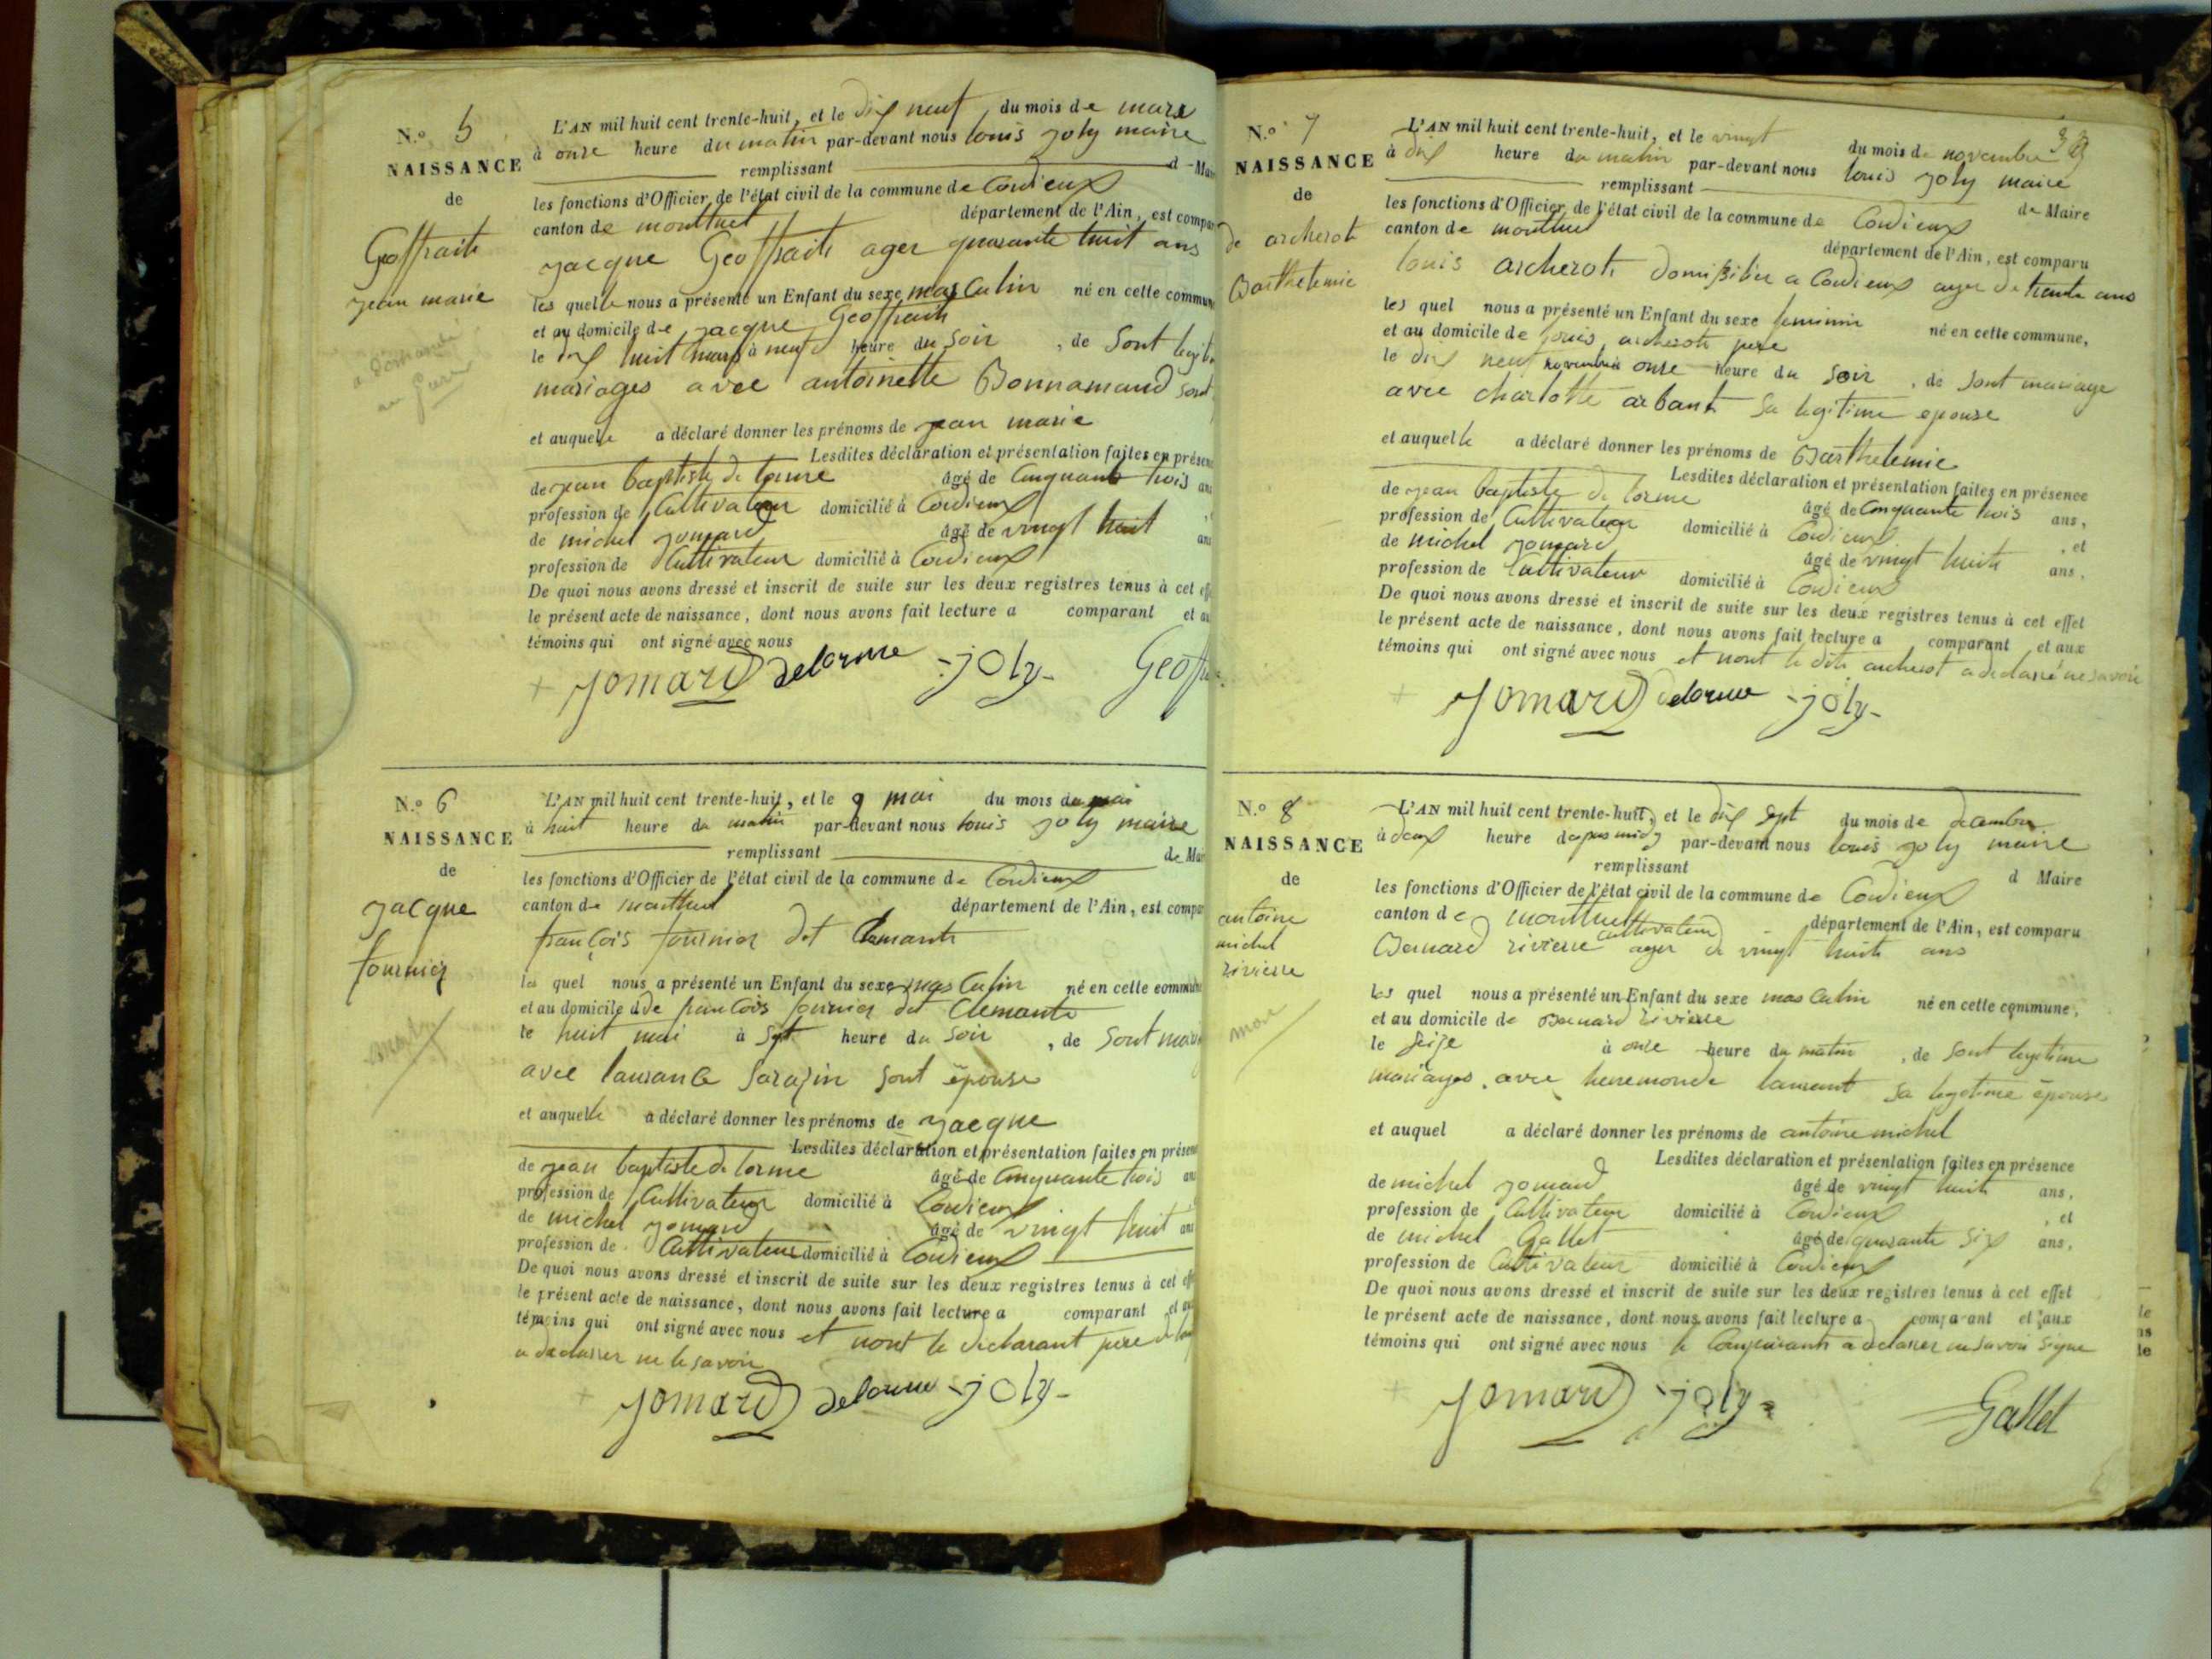 N.o 5
NAISSANCE
de
Geoffraite
jean marie
a Demandé
au Juré
L'AN mil huit cent trente-huit, et le dix neuf du mois de mars
à onze heure du matin par-devant nous louis joly maire
remplissant d Mai
les fonctions d'Officier de l'état civil de la commune de Cordieux
canton de montluel département de l'Ain, est compar
jacque Geoffraite ager quarante huit ans
les quelle nous a présenté un Enfant du sexe masculin né en cette commun
et au domicile de jacque Geoffraite
le dix huit mars à neuf heure du soir, de sont legit
mariages avec antoinette Bonnamaud sont
et auquelle a déclaré donner les prénoms de jean marie
Lesdites déclaration et présentation faites en présen
de jean baptiste de lorme âgé de cinquante trois an
profession de Cultivateur domicilié à Cordieux
de michel jomard âgé de vingt huit ans
profession de Cultivateur domicilié à Cordieux
De quoi nous avons dressé et inscrit de suite sur les deux registres tenus à cet eff
le présent acte de naissance, dont nous avons fait lecture a comparant et au
témoins qui ont signé avec nous
jomard delorme joly Geoff
N.o 6
NAISSANCE
de
jacque
fournier
L'AN mil huit cent trente-huit, et le 9 mai du mois du mai
à huit heure du matin par-devant nous louis joly maire
remplissant de Mai
les fonctions d'Officier de l'état civil de la commune de Cordieux
canton de montluel département de l'Ain, est compar
françois fournier dit Clemante
les quel nous a présenté un Enfant du sexe masculin né en cette commun
et au domicile dde francois fournier dit Clemante
le huit mai à sept heure du soir, de sont mari
avec laurance Sarazin sont épouse
et auquelle a déclaré donner les prénoms de jacque
Lesdites déclaration et présentation faites en présen
de jean baptiste de lorme âgé de cinquante trois an
profession de Cultivateur domicilié à Cordieux
de michel jomard âgé de vingt huit ans
profession de Cultivateur domicilié à Cordieux
De quoi nous avons dressé et inscrit de suite sur les deux registres tenus à cet eff
le présent acte de naissance, dont nous avons fait lecture a comparant et au
témoins qui ont signé avec nous et nont le declarant pere
a declarer ne le savoir
jomard delorme joly
N.o 7
NAISSANCE
de
de archerot
Barthelemie
L'AN mil huit cent trente-huit, et le vingt du mois de novembre
à dix heure du matin par-devant nous louis joly maire
remplissant de Maire
les fonctions d'Officier de l'état civil de la commune de Cordieux
canton de montluel département de l'Ain, est comparu
louis archerot domissilier a Cordieux ager de trante ans
les quel nous a présenté un Enfant du sexe feminin né en cette commune,
et au domicile de louis archerot pere
le dix neuf novembre onze heure du soir, de sont mariage
avec charlotte arbant sa legitime epouse
et auquelle a déclaré donner les prénoms de Barthelemie
Lesdites déclaration et présentation faites en présence
de jean baptiste de lorme âgé de Cinquante trois ans,
profession de Cultivateur domicilié à Cordieux, et
de michel jomard âgé de vingt huit ans,
profession de Cultivateur domicilié à Cordieux
De quoi nous avons dressé et inscrit de suite sur les deux registres tenus à cet effet
le présent acte de naissance, dont nous avons fait lecture a comparant et aux
témoins qui ont signé avec nous et nont le dit archerot a declaré ne savoir
jomard delorme joly
N.o 8
NAISSANCE
de
antoine
michel
riviere
mort
L'AN mil huit cent trente-huit, et le dix sept du mois de decembre
à deux heure dapres midy par-devant nous louis joly maire
remplissant d Maire
les fonctions d'Officier de l'état civil de la commune de Cordieux
canton de montluel département de l'Ain, est comparu
Bernard riviere cultivateur ager de vingt huit ans
les quel nous a présenté un Enfant du sexe masculin né en cette commune,
et au domicile de Bernard riviere
le seize à onze heure du matin, de sont legitime
mariages avec henemonde laurant sa legetime épouse
et auquel a déclaré donner les prénoms de antoine michel
Lesdites déclaration et présentation faites en présence
de michel jomard âgé de vingt huit ans,
profession de Cultivateur domicilié à Cordieux, et
de michel Gallet âgé de quarante six ans,
profession de Cultivateur domicilié à Cordieux
De quoi nous avons dressé et inscrit de suite sur les deux registres tenus à cet effet
le présent acte de naissance, dont nous avons fait lecture a comparant et aux
témoins qui ont signé avec nous le Comparant a declarer ne savoir signe
jomard joly Gallet